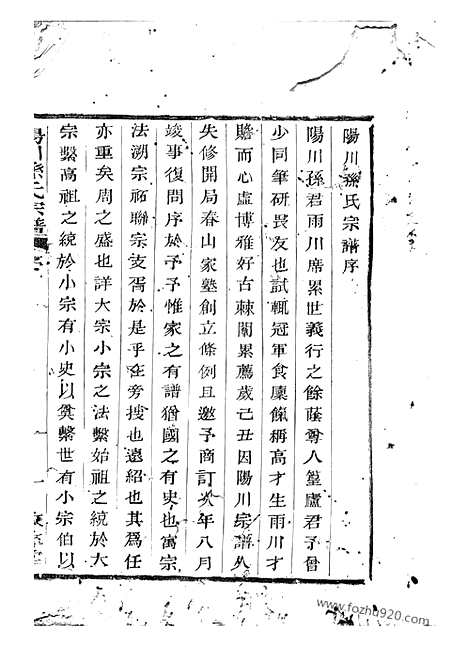 陽川孫氏宗譜序
陽川孫君雨川席累世義行之餘蔭尊人篁廬君予曾
少同筆研畏友也試輒冠軍食廩餼稱高才生雨川才
贍而心虛博雅好古棘闈累薦歲己丑因陽川宗譜久
失修開局春山家塾創立條例且邀予商訂次年八月
竣事復問序於予予惟家之有譜猶國之有史也寓宗
法溯宗祐聯宗支胥於是乎在旁搜也遠紹也其為任
亦重矣周之盛也詳大宗小宗之法繫始祖之統於大
宗繫高祖之統於小宗有小史以奠繫世有小宗伯以
陽川孫氏宗譜 序
一
www.fozhu920.com